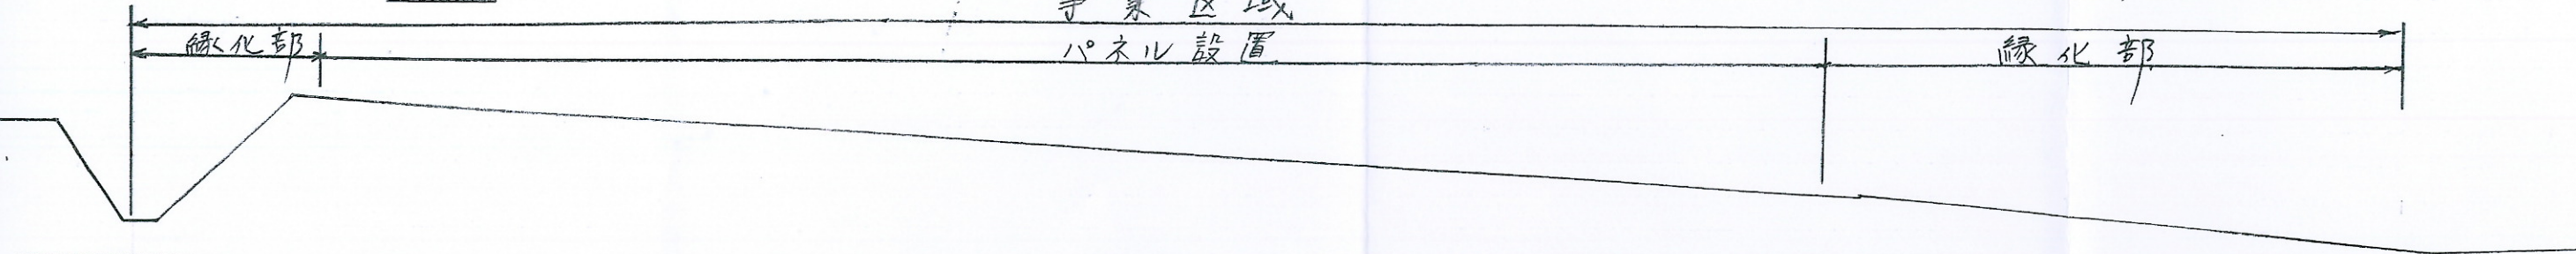 事業区域
緑化部 パネル設置 緑化部